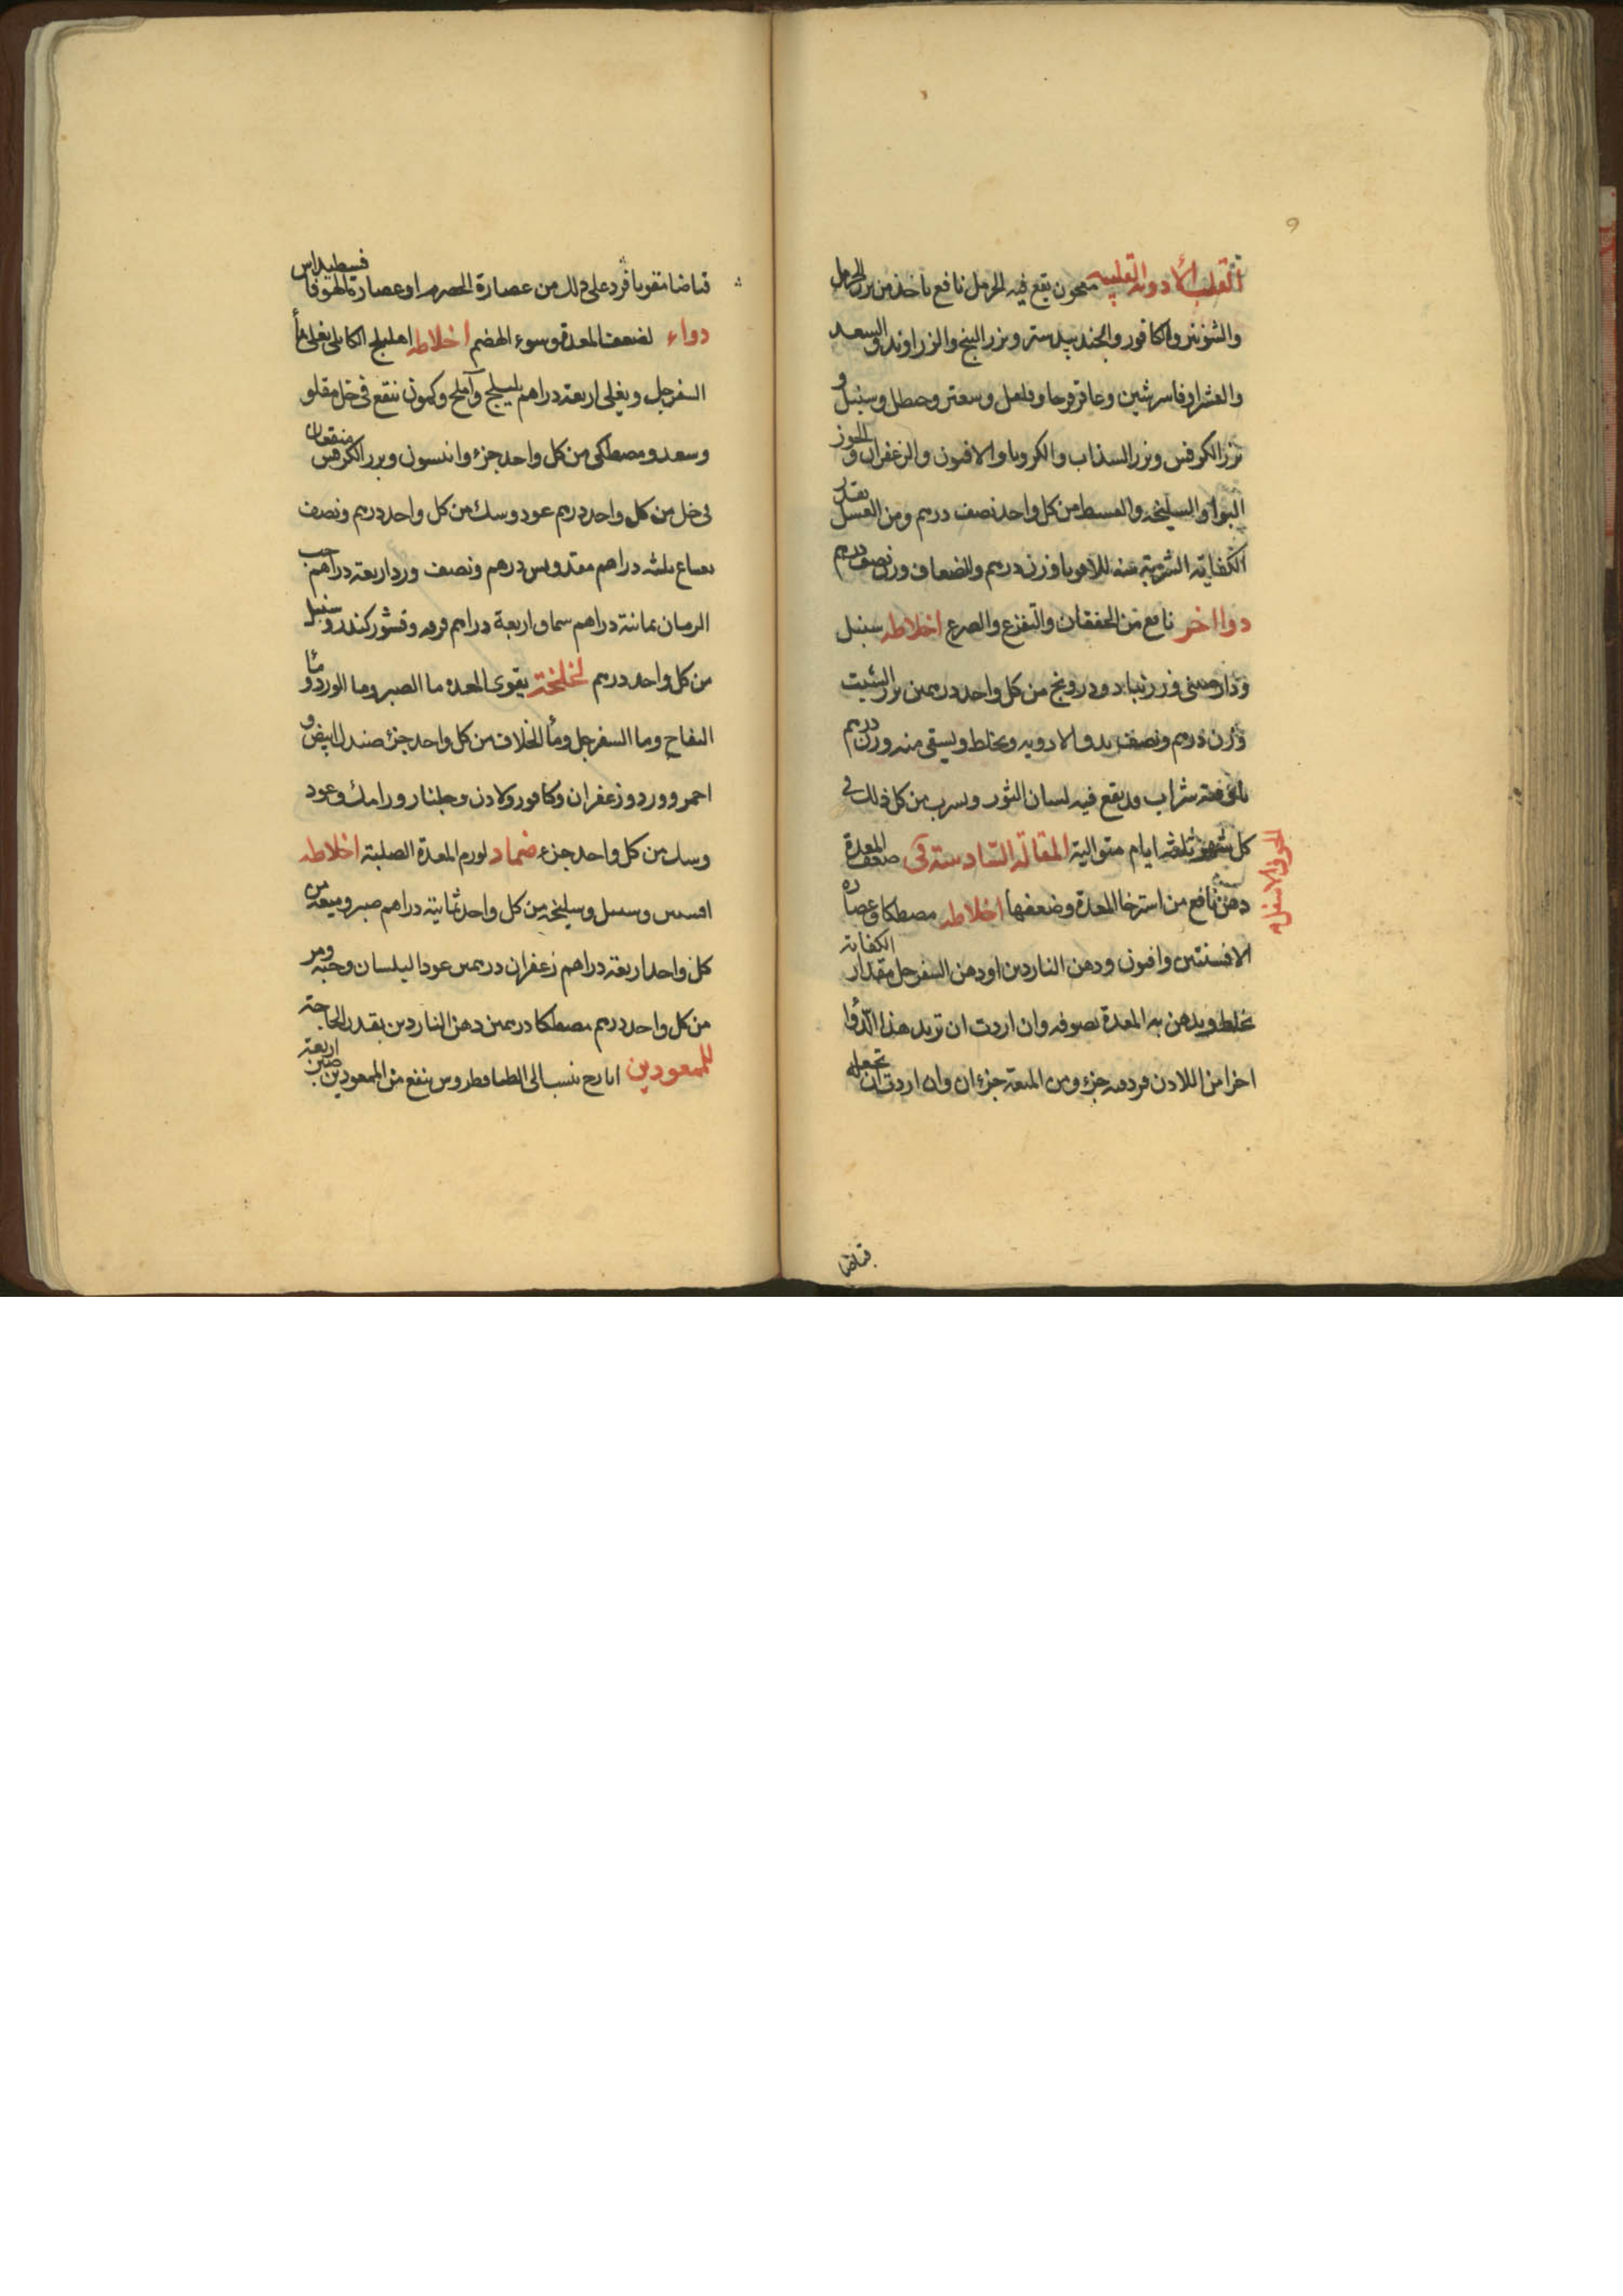 القلب الأدوية القلبية معجون يقع فيه الحرمل نافع يأخذ من بزر الحرمل
والشونيز والكافور والجندبيدستر وبزر البنج والزراوند والسعد
وعاقرقرحا وفلفل وسعتر وحنظل وسنبل و
بزر الكرفس وبزر السذاب والكرويا والافيون والزعفران والجوز
البوا والسليخه والقسط من كل واحد نصف درهم ومن العسل بقدر
الكفاية الشربة منه للاقويا وزن درهم وللضعاف وزن نصف درهم
دوا اخر نافع من الخفقان والتفزع والصرع اخلاطه سنبل
ودارصينى وزرنباد ودرونج من كل واحد درهمين بزر الشبت
وزن درهم ونصف يدق الادويه ويخلط ويسقى منه وزن درهم
شراب وقد يقع فيه لسان الثور ويشرب من كل ذلك فى
كل شهر ثلثه ايام متوالية المقاله السادسة فى ضعف المعدة
دهن نافع من استرخا المعدة وضعفها اخلاطه مصطكا وعصاره
الافسنتين وافيون ودهن الناردين او دهن السفرجل مقدار الكفاية
يخلط ويدهن به المعدة بصوفه وان اردت ان تزيد هذا الدوا
اخرا من اللادن فزدمه جزء ومن الميعة جزءان وان اردت ان تجعله
قباضا
قباضا مقويا فزد على ذلك من عصارة الحصرم او عصارة الهوفاقسطيداس
دواء لضعف المعدة وسوء الهضم اخلاطه اهليلج الكابلى يغلى بماء
السفرجل ويغلى اربعة دراهم بليلج وآملج وكمون ينقع فى خل مقلو
وسعد ومصطكى من كل واحد جزء وانيسون وبزر الكرفس منقعان
فى خل من كل واحد درهم عود وسك من كل واحد درهم ونصف
نعناع ثلثه دراهم درهم ونصف ورد اربعة دراهم حب
الرمان ثمانية دراهم سماق اربعة دراهم قرفه وقشور كندر وسنبل
من كل واحد درهم لخلخة يقوى المعده ما الصبر وما الورد وماء
التفاح وما السفرجل وماء الخلاف من كل واحد جزء صندل ابيض و
احمر وورد وزعفران وكافور ولادن وجلنار ورامك وعود
وسك من كل واحد جزء ضماد لورم المعدة الصلبة اخلاطه
وسنبل وسليخه من كل واحد ثمانية دراهم صبر وميعه من
كل واحد اربعة دراهم زعفران درهمين عود البلسان وحبه ومر
من كل واحد درهم مصطكا درهمين دهن الناردين بقدر الحاجة
للممعودين ايارج ينسب الى ينفع من الممعودين صبر اربعة